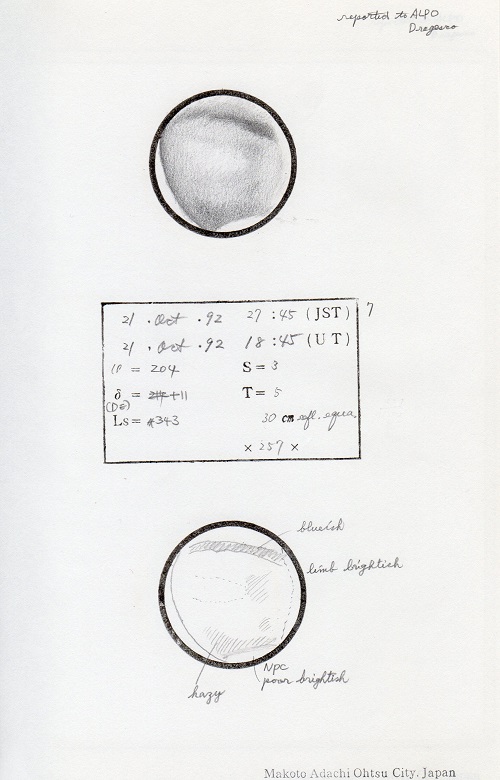 reported to ALPO
21 . Oct . 92 27 : 45 (JST) 7
21 . Oct . 92 18 : 45 (U T)
= 204 S = 3
δ = +11 T = 5
(DE)
Ls = 343
30 cm refl. equa.
× 257 ×
blueish
limb brightish
NPC
poor brightish
hazy
Makoto Adachi Ohtsu City. Japan